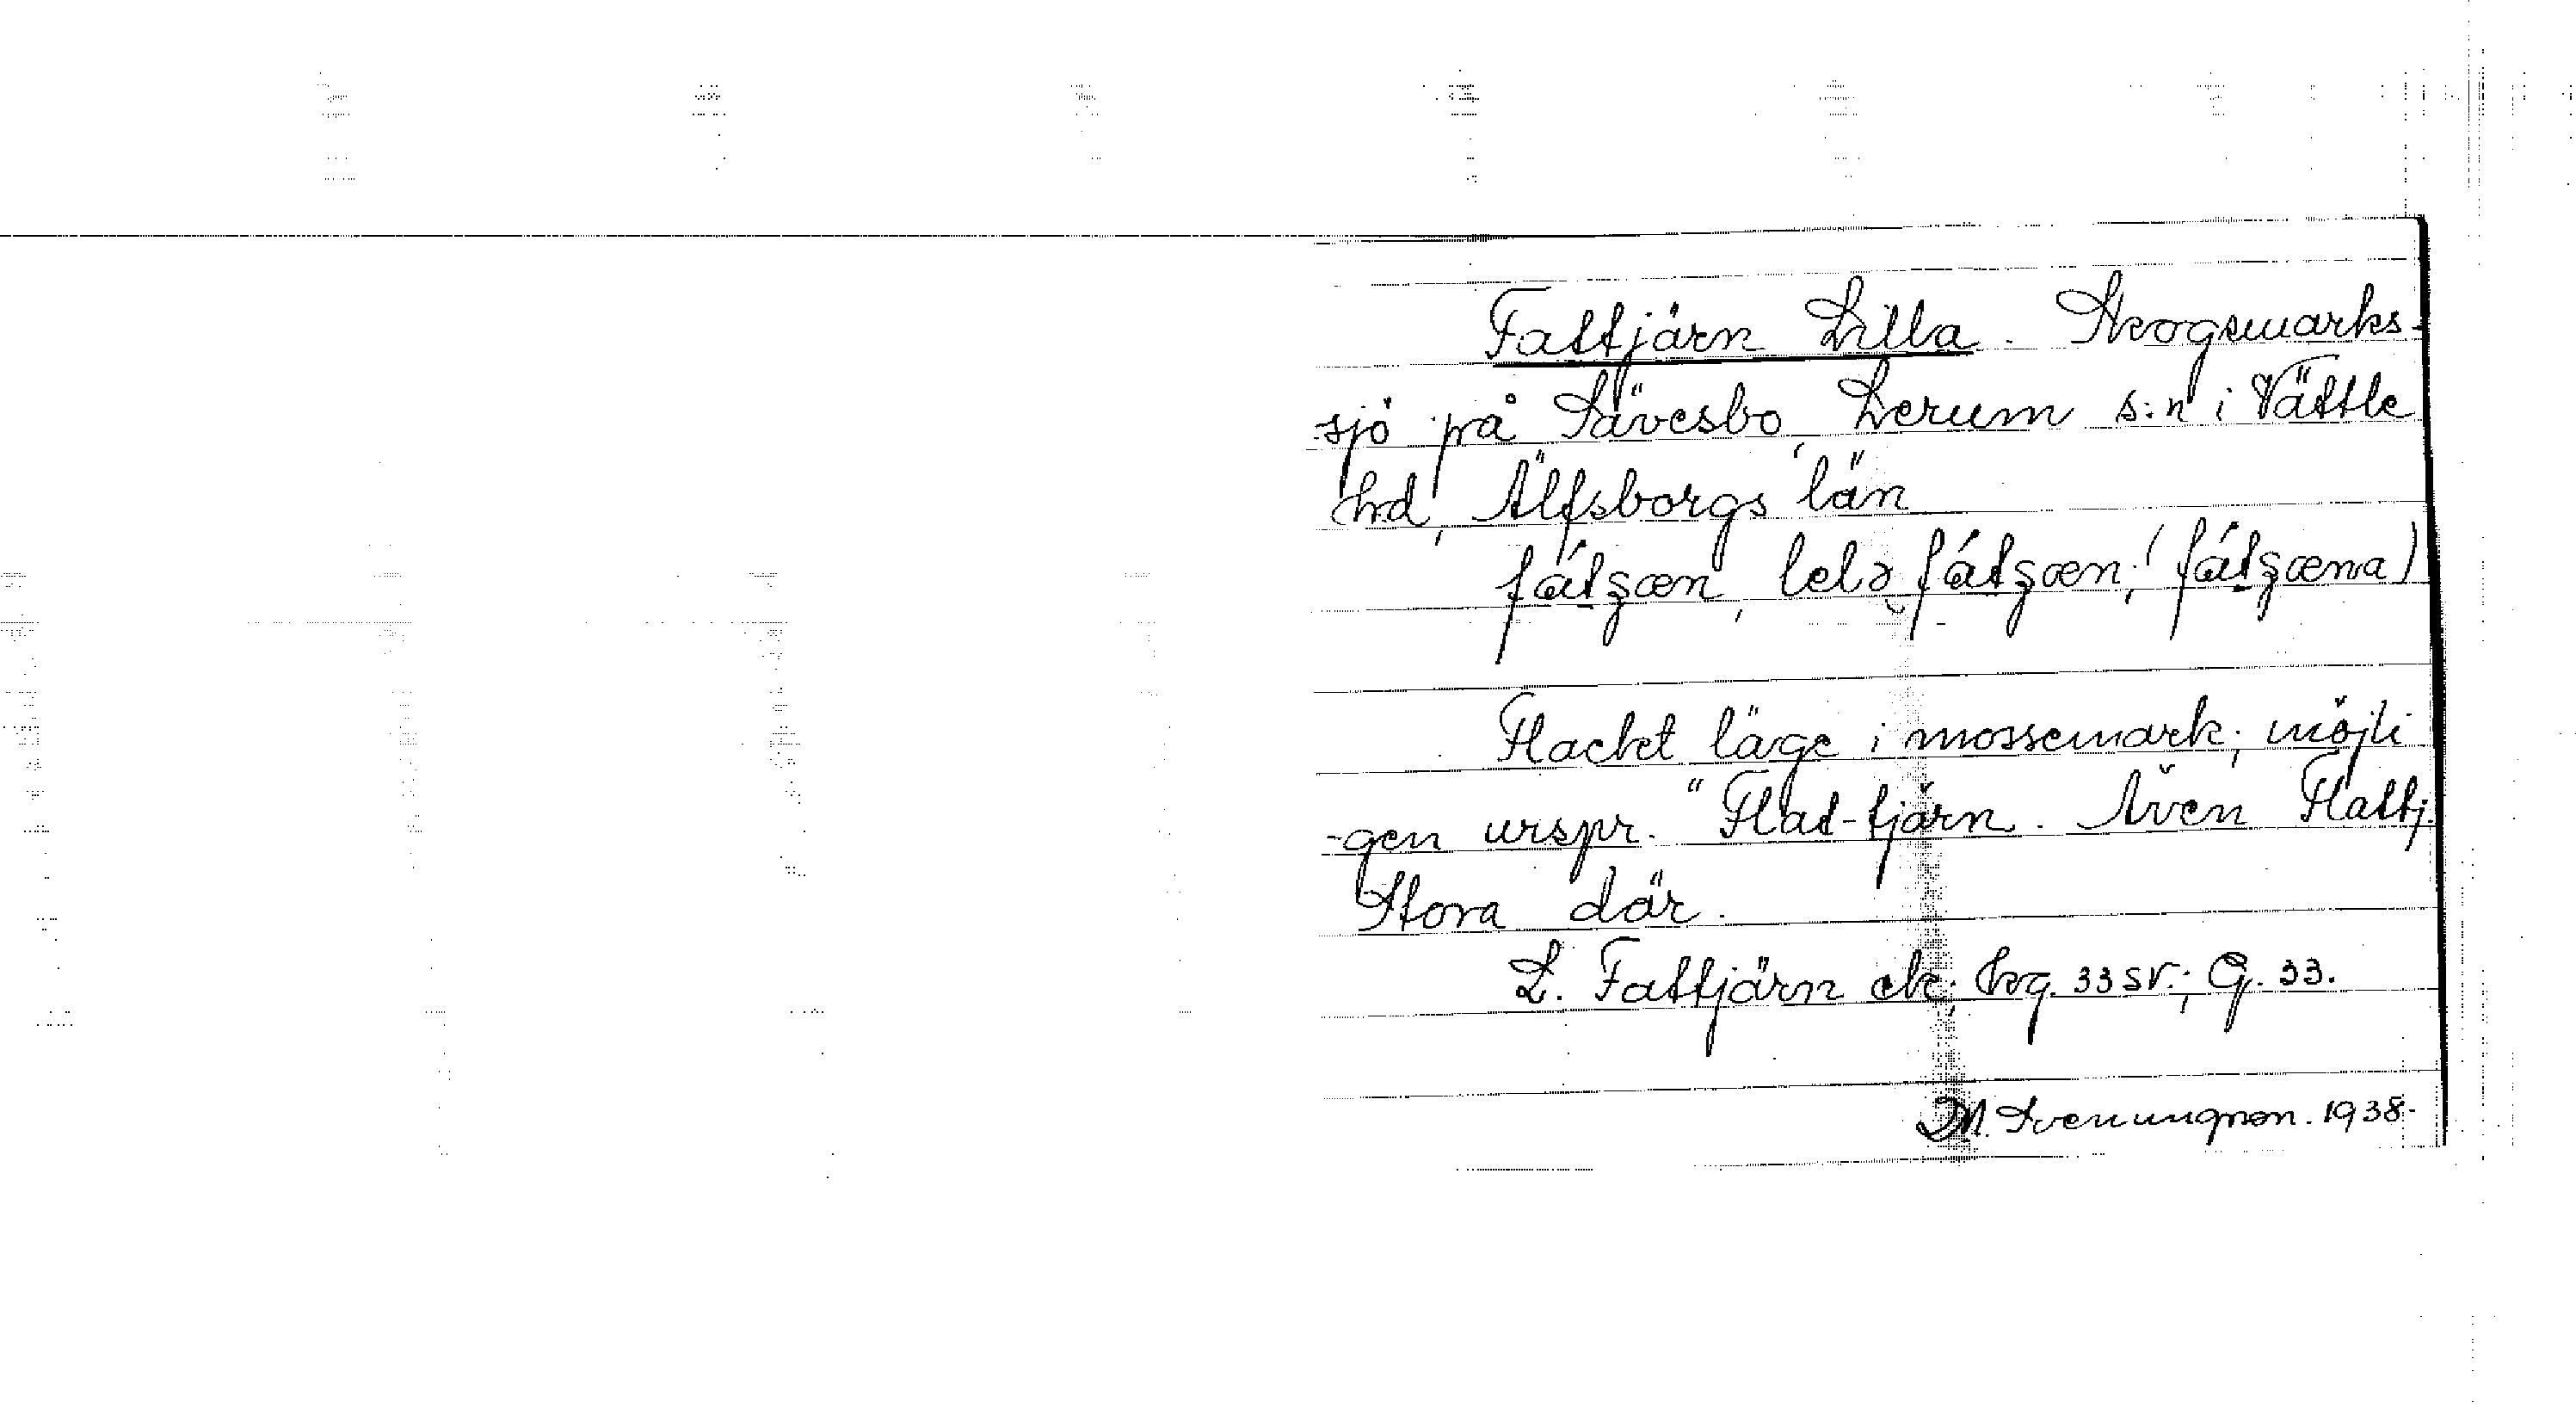 Fattjärn Lilla. Skogsmarks-
sjö på Sävesbo, Lerum s:n i Vättle
hd, Älfsborgs län
fátʒæn, lelə fátʒæn; (fátʒæna)
Flacket läge i mossemark; möjli
-gen urspr. "Flat-tjärn. Även Flattj.
Stora där.
L. Fattjärn ek; hg. 33 sv.; G. 33.
M. Svenungson. 1938-